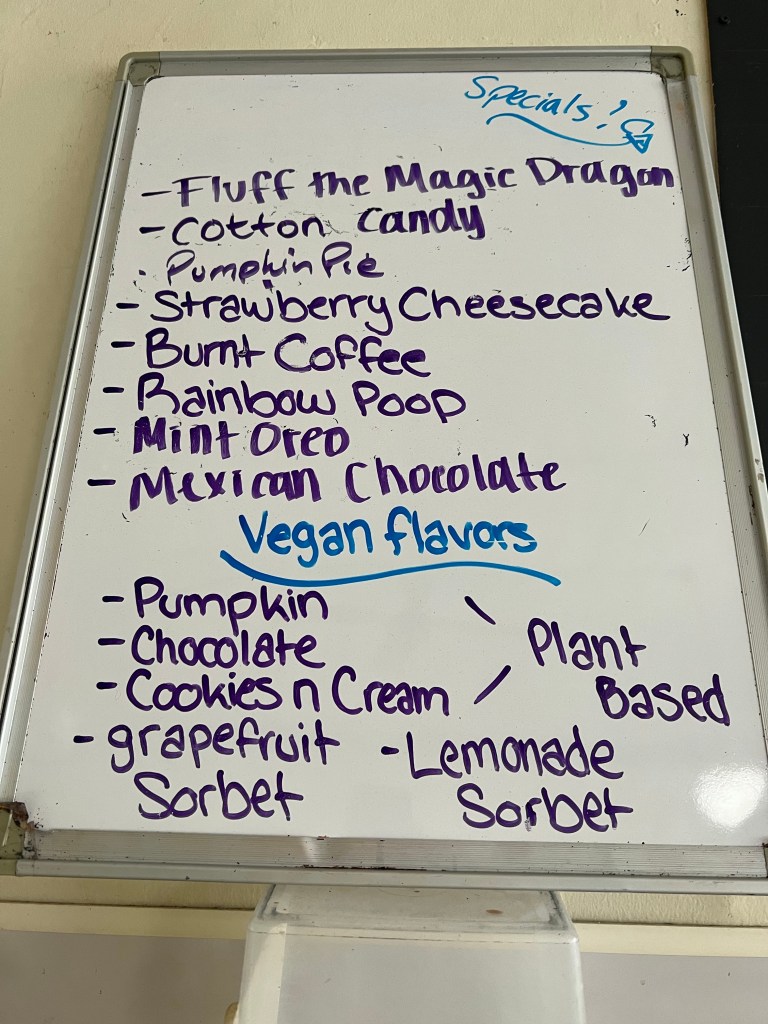 Specials!
- Fluff the Magic Dragon
- Cotton Candy
- Pumpkin Pie
- Strawberry Cheesecake
- Burnt Coffee
- Rainbow Poop
- Mint Oreo
- Mexican Chocolate
Vegan flavors
- Pumpkin
- Chocolate
- Cookies n Cream
Plant
Based
- grapefruit
Sorbet
- Lemonade
Sorbet